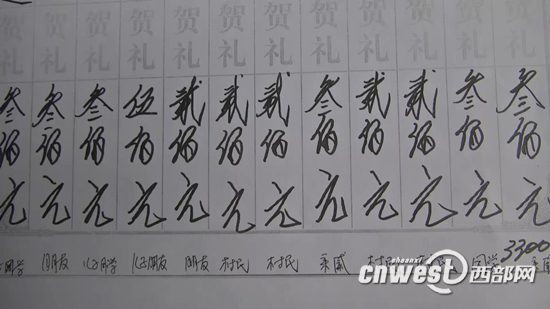 贺礼 叁佰元 同学
贺礼 叁佰元 朋友
贺礼 叁佰元 儿子同学
贺礼 伍佰元 儿子朋友
贺礼 贰佰元 朋友
贺礼 贰佰元 村民
贺礼 贰佰元 村民
贺礼 叁佰元 亲戚
贺礼 贰佰元 村民
贺礼 贰佰元
贺礼 叁佰元 同学
贺礼 叁佰元 亲戚
3300
cnwest 西部网